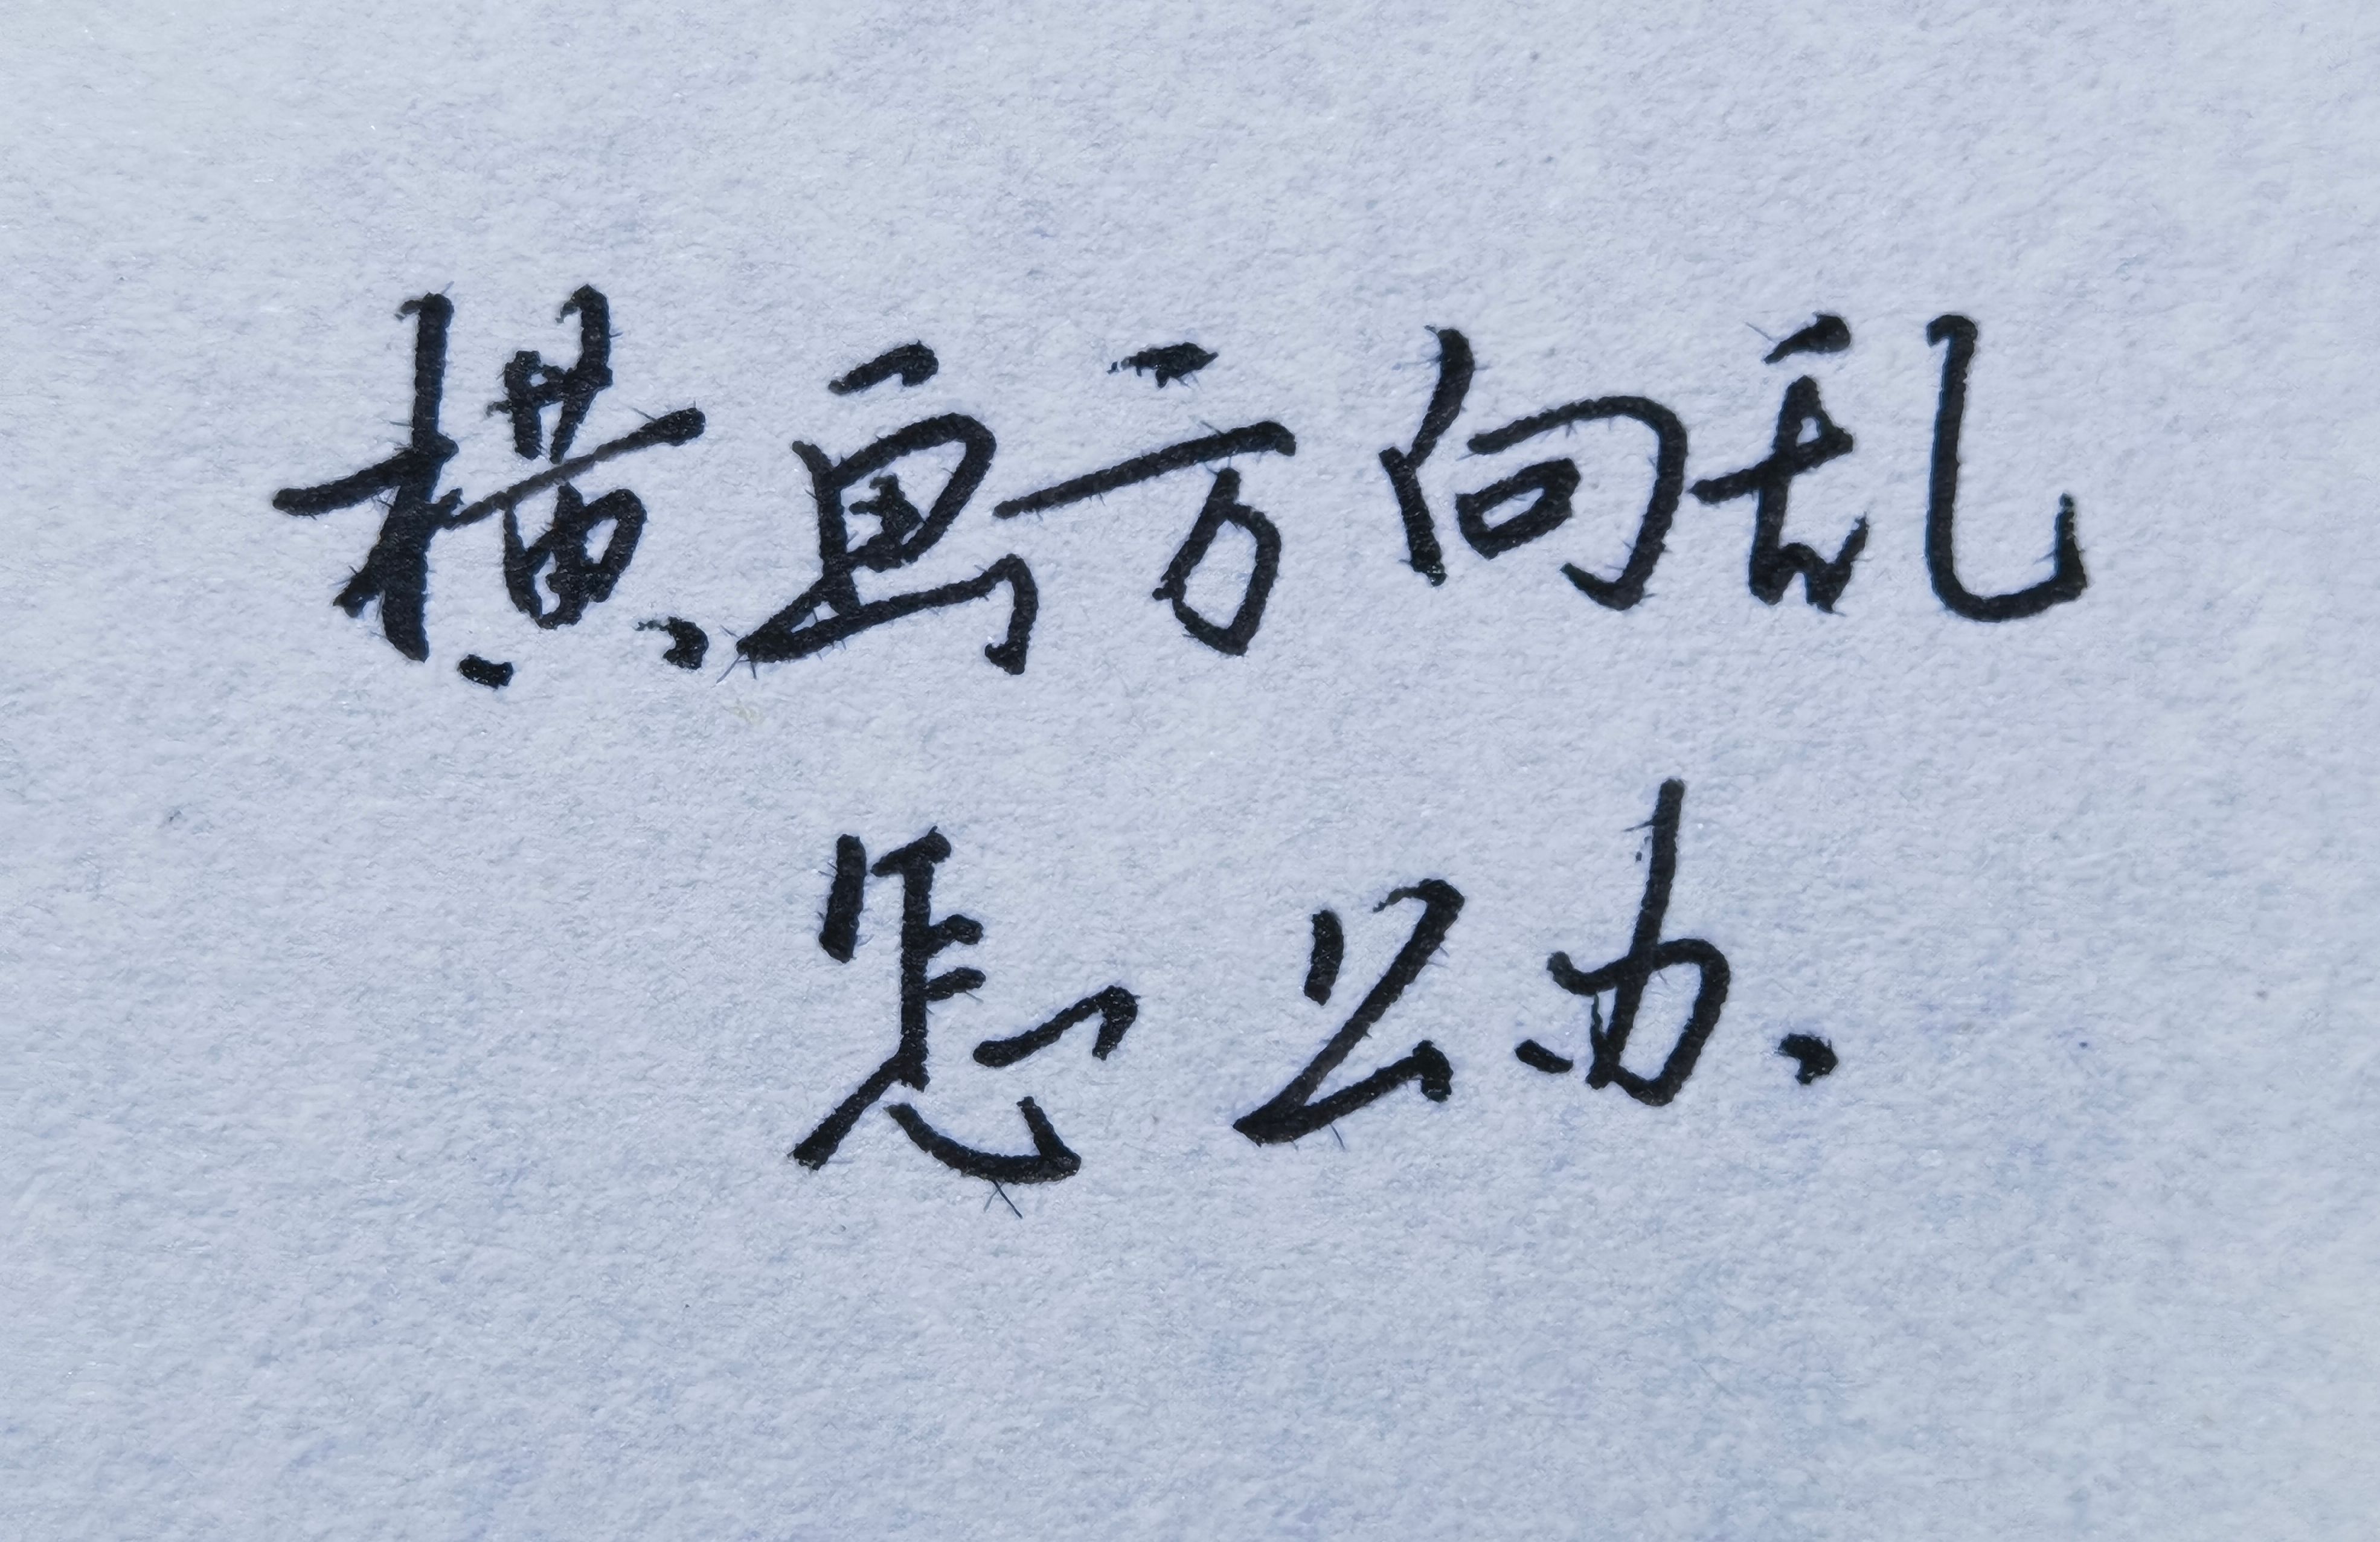 横画方向乱
怎么办